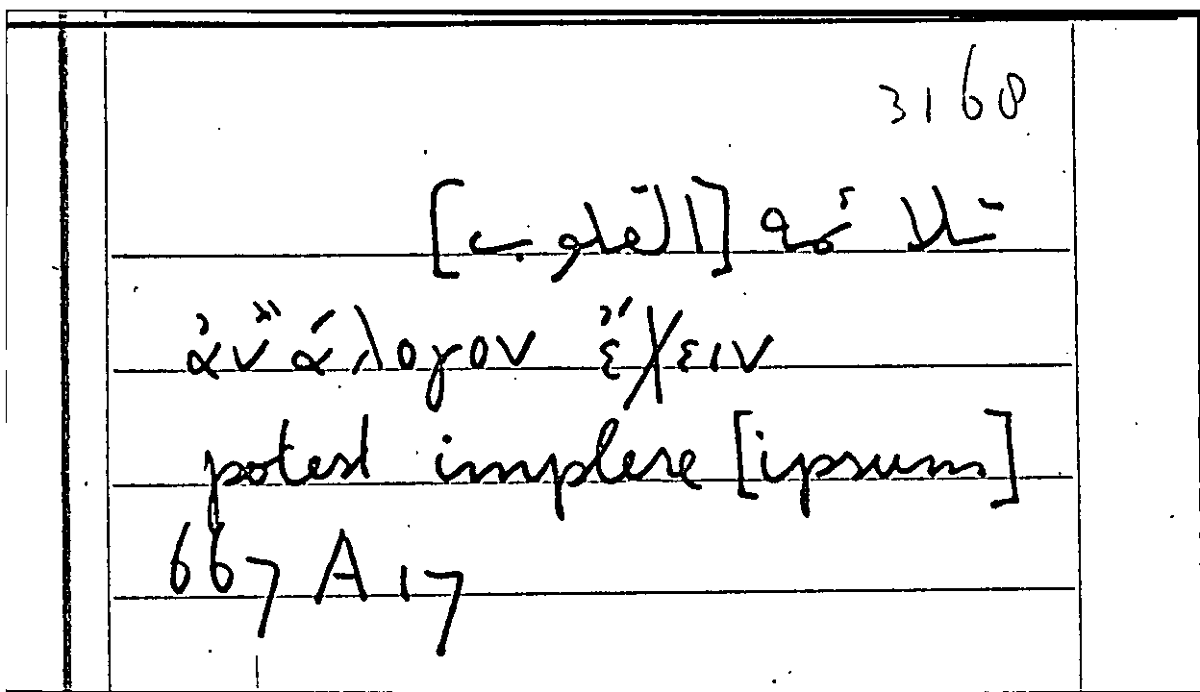 3168
تلائمه [القلوب]
ἀνάλογον ἔχειν
potest implere [ipsum]
667 A 17